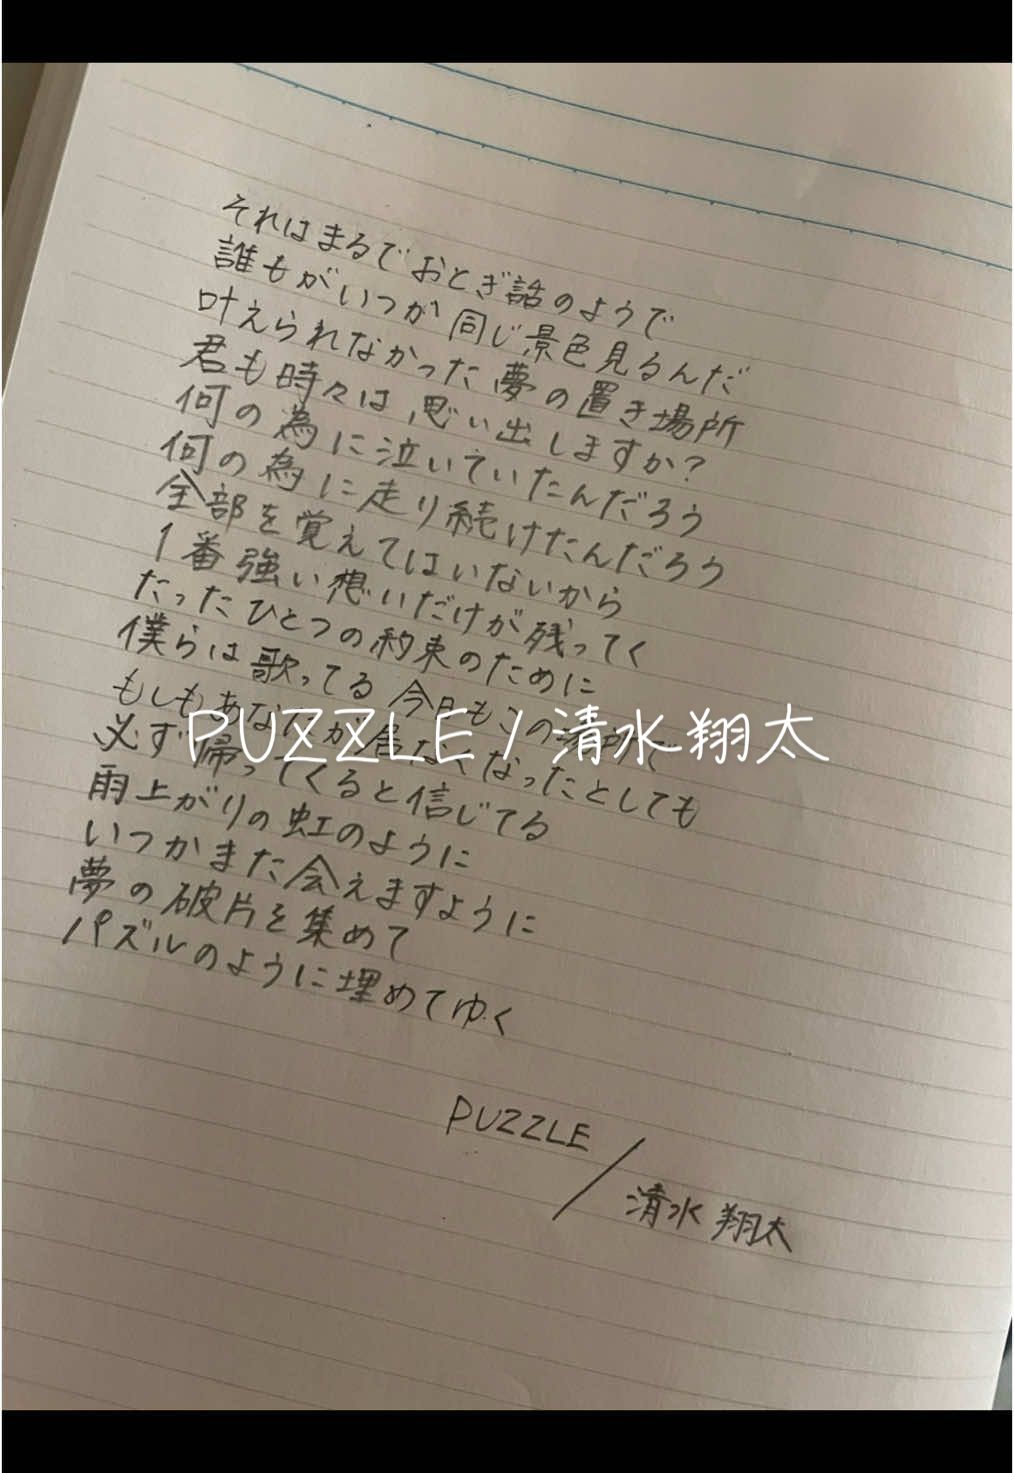 それはまるでおとぎ話のようで
誰もがいつか同じ景色見るんだ
叶えられなかった夢の置き場所
君も時々は思い出しますか?
何の為に泣いていたんだろう
何の為に走り続けたんだろう
全部を覚えてはいないから
1番強い想いだけが残ってく
たったひとつの約束のために
僕らは歌ってる 今日もこの場所で
もしもあなたが なくなったとしても
必ず帰ってくると信じてる
雨上がりの虹のように
いつかまた会えますように
夢の破片を集めて
パズルのように埋めてゆく
PUZZLE / 清水翔太
PUZZLE / 清水翔太